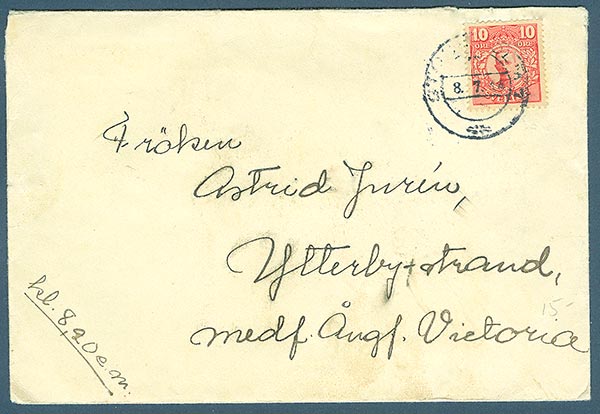 10 10
ÖRE ÖRE
8. 7.
Fröken
Astrid Jurén,
Ytterby-strand,
medf. Ångf. Victoria
15-
kl. 8,20 e.m.